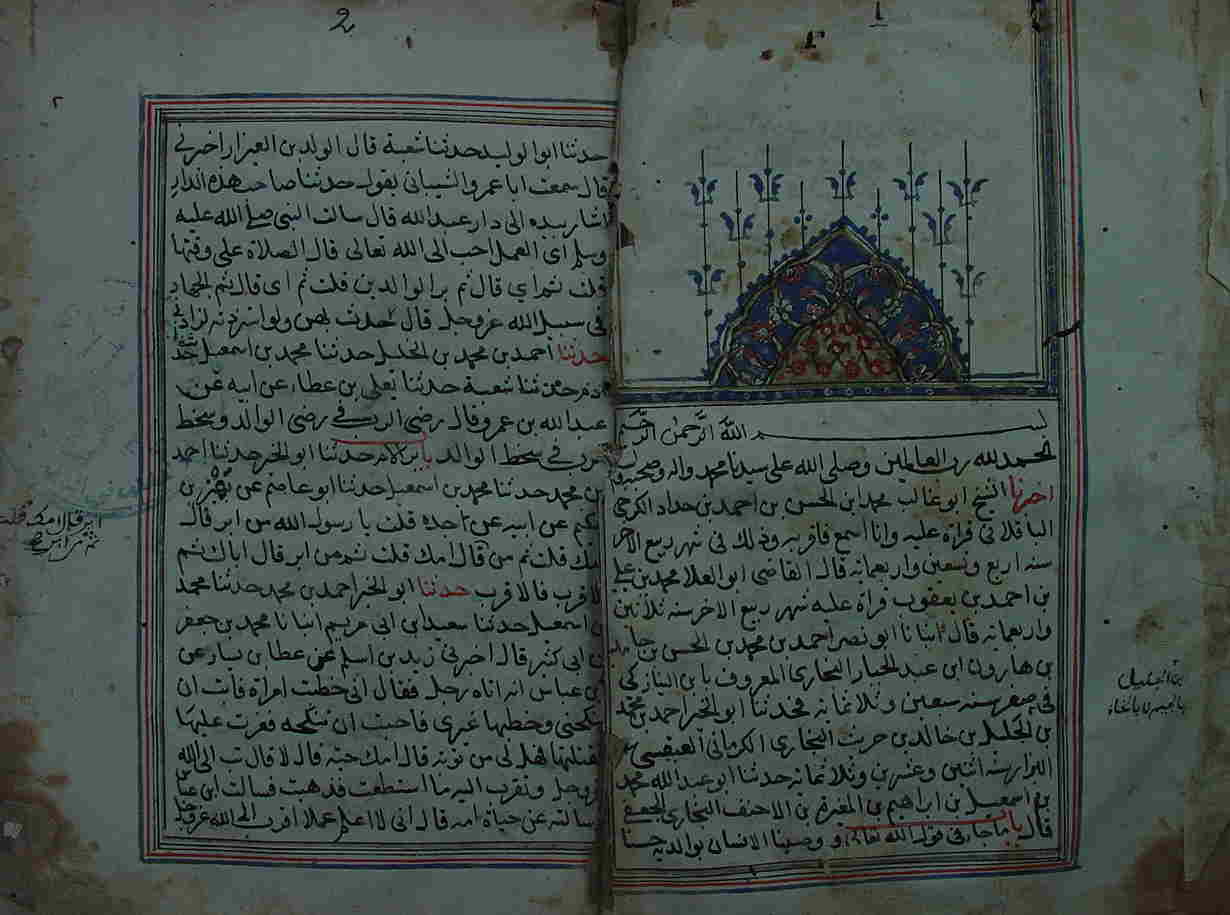 ١
٢
بســـم الله الرَّحمن الرَّحيم
الحمد لله رب العالمين وصلى الله على سيدنا محمد واله وصحبه
اخبرنا الشيخ ابو غالب محمد بن الحسن بن احمد بن حداد الكرجي
الباقلاني قراة عليه وانا اسمع فاقر به وذلك في شهر ربيع الاخر
سنه اربع وتسعين واربعمائه قال القاضى ابو العلا محمد بن على
بن احمد بن يعقوب قراة عليه شهر ربيع الاخر سنه ثلاثين
واربعمائه قال انبانا ابو نصر احمد بن محمد بن الحسن بن حامد
بن هارون ابن عبد الجبار البخارى المعروف بابن النيازكى
في صفر سنه سبعين وثلاثمائه حدثنا ابو الخير احمد بن محمد
بن الجليل بن خالد بن حريث البخارى الكرمانى العبقسى
البزار سنه اثنين وعشرين وثلاثمائه حدثنا ابو عبد الله محمد
بن اسمعيل بن ابراهيم بن المغيرة بن الاحنف البخارى الجعفى
قال باب ما جاء في قول الله تعالى ووصينا الانسان بوالديه حسنا
بن الجليل
2
٢
حدثنا ابو الوليد حدثنا شعبة قال الولد بن العيزار اخبرنى
قال سمعت ابا عمرو الشيبانى يقول حدثنا صاحب هذه الدار
واشار بيده الى دار عبد الله قال سالت النبى صلى الله عليه
وسلم اى العمل احب الى الله تعالى قال الصلاة على وقتها
قلت ثم اي قال ثم بر الوالدين قلت ثم اى قال ثم الجهاد
في سبيل الله عز وجل قال حدثنى بهن ولو استزدته لزادنى
حدثنا احمد بن محمد بن الخليل حدثنا محمد بن اسمعيل حدثنا
ادم حدثنا شعبة حدثنا يعلى بن عطاء عن ابيه عن
عبد الله بن عمرو قال رضى الرب في رضى الوالد وسخط
الرب في سخط الوالد باب بر الام حدثنا ابو الخير حدثنا احمد
بن محمد حدثنا محمد بن اسمعيل حدثنا ابو عاصم عن بَهْز بن
حكيم عن ابيه عن جده قلت يا رسول الله من ابر قال
امك قلت ثم من قال امك قلت ثم من ابر قال اباك ثم
الاقرب فالاقرب حدثنا ابو الخير احمد بن محمد حدثنا محمد
بن اسمعيل حدثنا سعيد بن ابى مريم انبانا محمد بن جعفر
بن ابى كثير قال اخبرنى زيد بن اسلم عن عطا بن يسار عن
ابن عباس انه اتاه رجل فقال انى خطبت امراة فابت ان
تنكحنى وخطبها غيرى فاحبت ان تنكحه فغرت عليها
فقتلتها فهل لى من توبة قال امك حية قال لا قال تب الى الله
عز وجل وتقرب اليه ما استطعت فذهبت فسالت ابن عباس
سالته عن حياة امه قال انى لا اعلم عملا اقرب الى الله عز وجل
ابر قال امك قلت